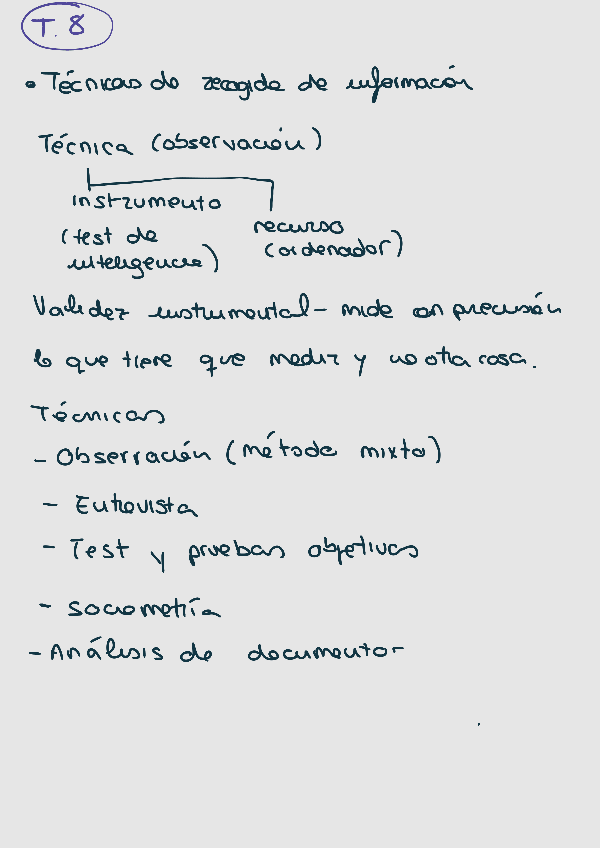 T. 8
• Técnicas de recogida de información
Técnica (observación)
instrumento
(test de inteligencia)
recurso
(ordenador)
Validez instrumental - mide con precisión
lo que tiene que medir y no otra cosa.
Técnicas
- Observación (método mixto)
- Entrevista
- Test y pruebas objetivas
- Sociometría
- Análisis de documentos